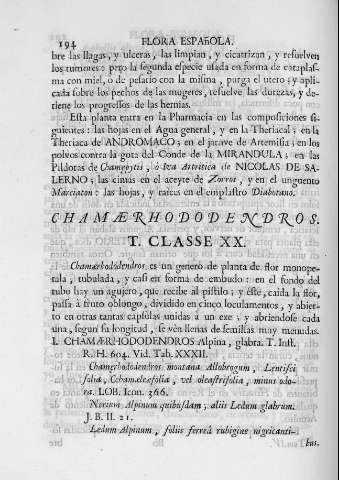 194 FLORA ESPAñOLA.
bre las llagas, y ulceras, las limpian, y cicatrizan, y resuelven
los tumores: pero la segunda especie usada en forma de cataplas-
ma con miel, o de pesario con la misma, purga el utero; y apli-
cada sobre los pechos de las mugeres, resuelve las durezas, y de-
tiene los progressos de las hernias.
Esta planta entra en la Pharmacia en las composiciones si-
guientes: las hojas en el Agua general, y en la Theriacal; en la
Theriaca de ANDROMACO; en el jarave de Artemisa; en los
polvos contra la gota del Conde de la MIRANDULA; en las
Pildoras de Chamepyti; ò Iva Artritica de NICOLAS DE SA-
LERNO; las cimas en el aceyte de Zorros, y en el unguento
Marciaton: las hojas, y raices en el emplastro Diabotano.
CHAMÆRHODODENDROS.
T. CLASSE XX.
Chamærhododendros es un genero de planta de flor monope-
tala, tubulada, y casi en forma de embudo: en el fondo del
tubo hay un agujero, que recibe al pistilo; y éste, caida la flor,
passa à fruto oblongo, dividido en cinco loculamentos, y abier-
to en otras tantas capsulas unidas à un exe; y abriendose cada
una, segun su longitud, se vèn llenas de semillas muy menudas.
I. CHAMÆRHODODENDROS Alpina, glabra. T. Inst.
R. H. 604. Vid. Tab. XXXII.
Chamærhododendros montana Allobrogum, Lentisci
folia, Cchamæleæfolia, vel oleastrifolia, minus odo-
ra. LOB. Icon. 366.
Nerium Alpinum quibusdam; aliis Ledum glabrum.
J. B. II. 21.
Ledum Alpinum, foliis ferreâ rubigine nigricanti-
bus.